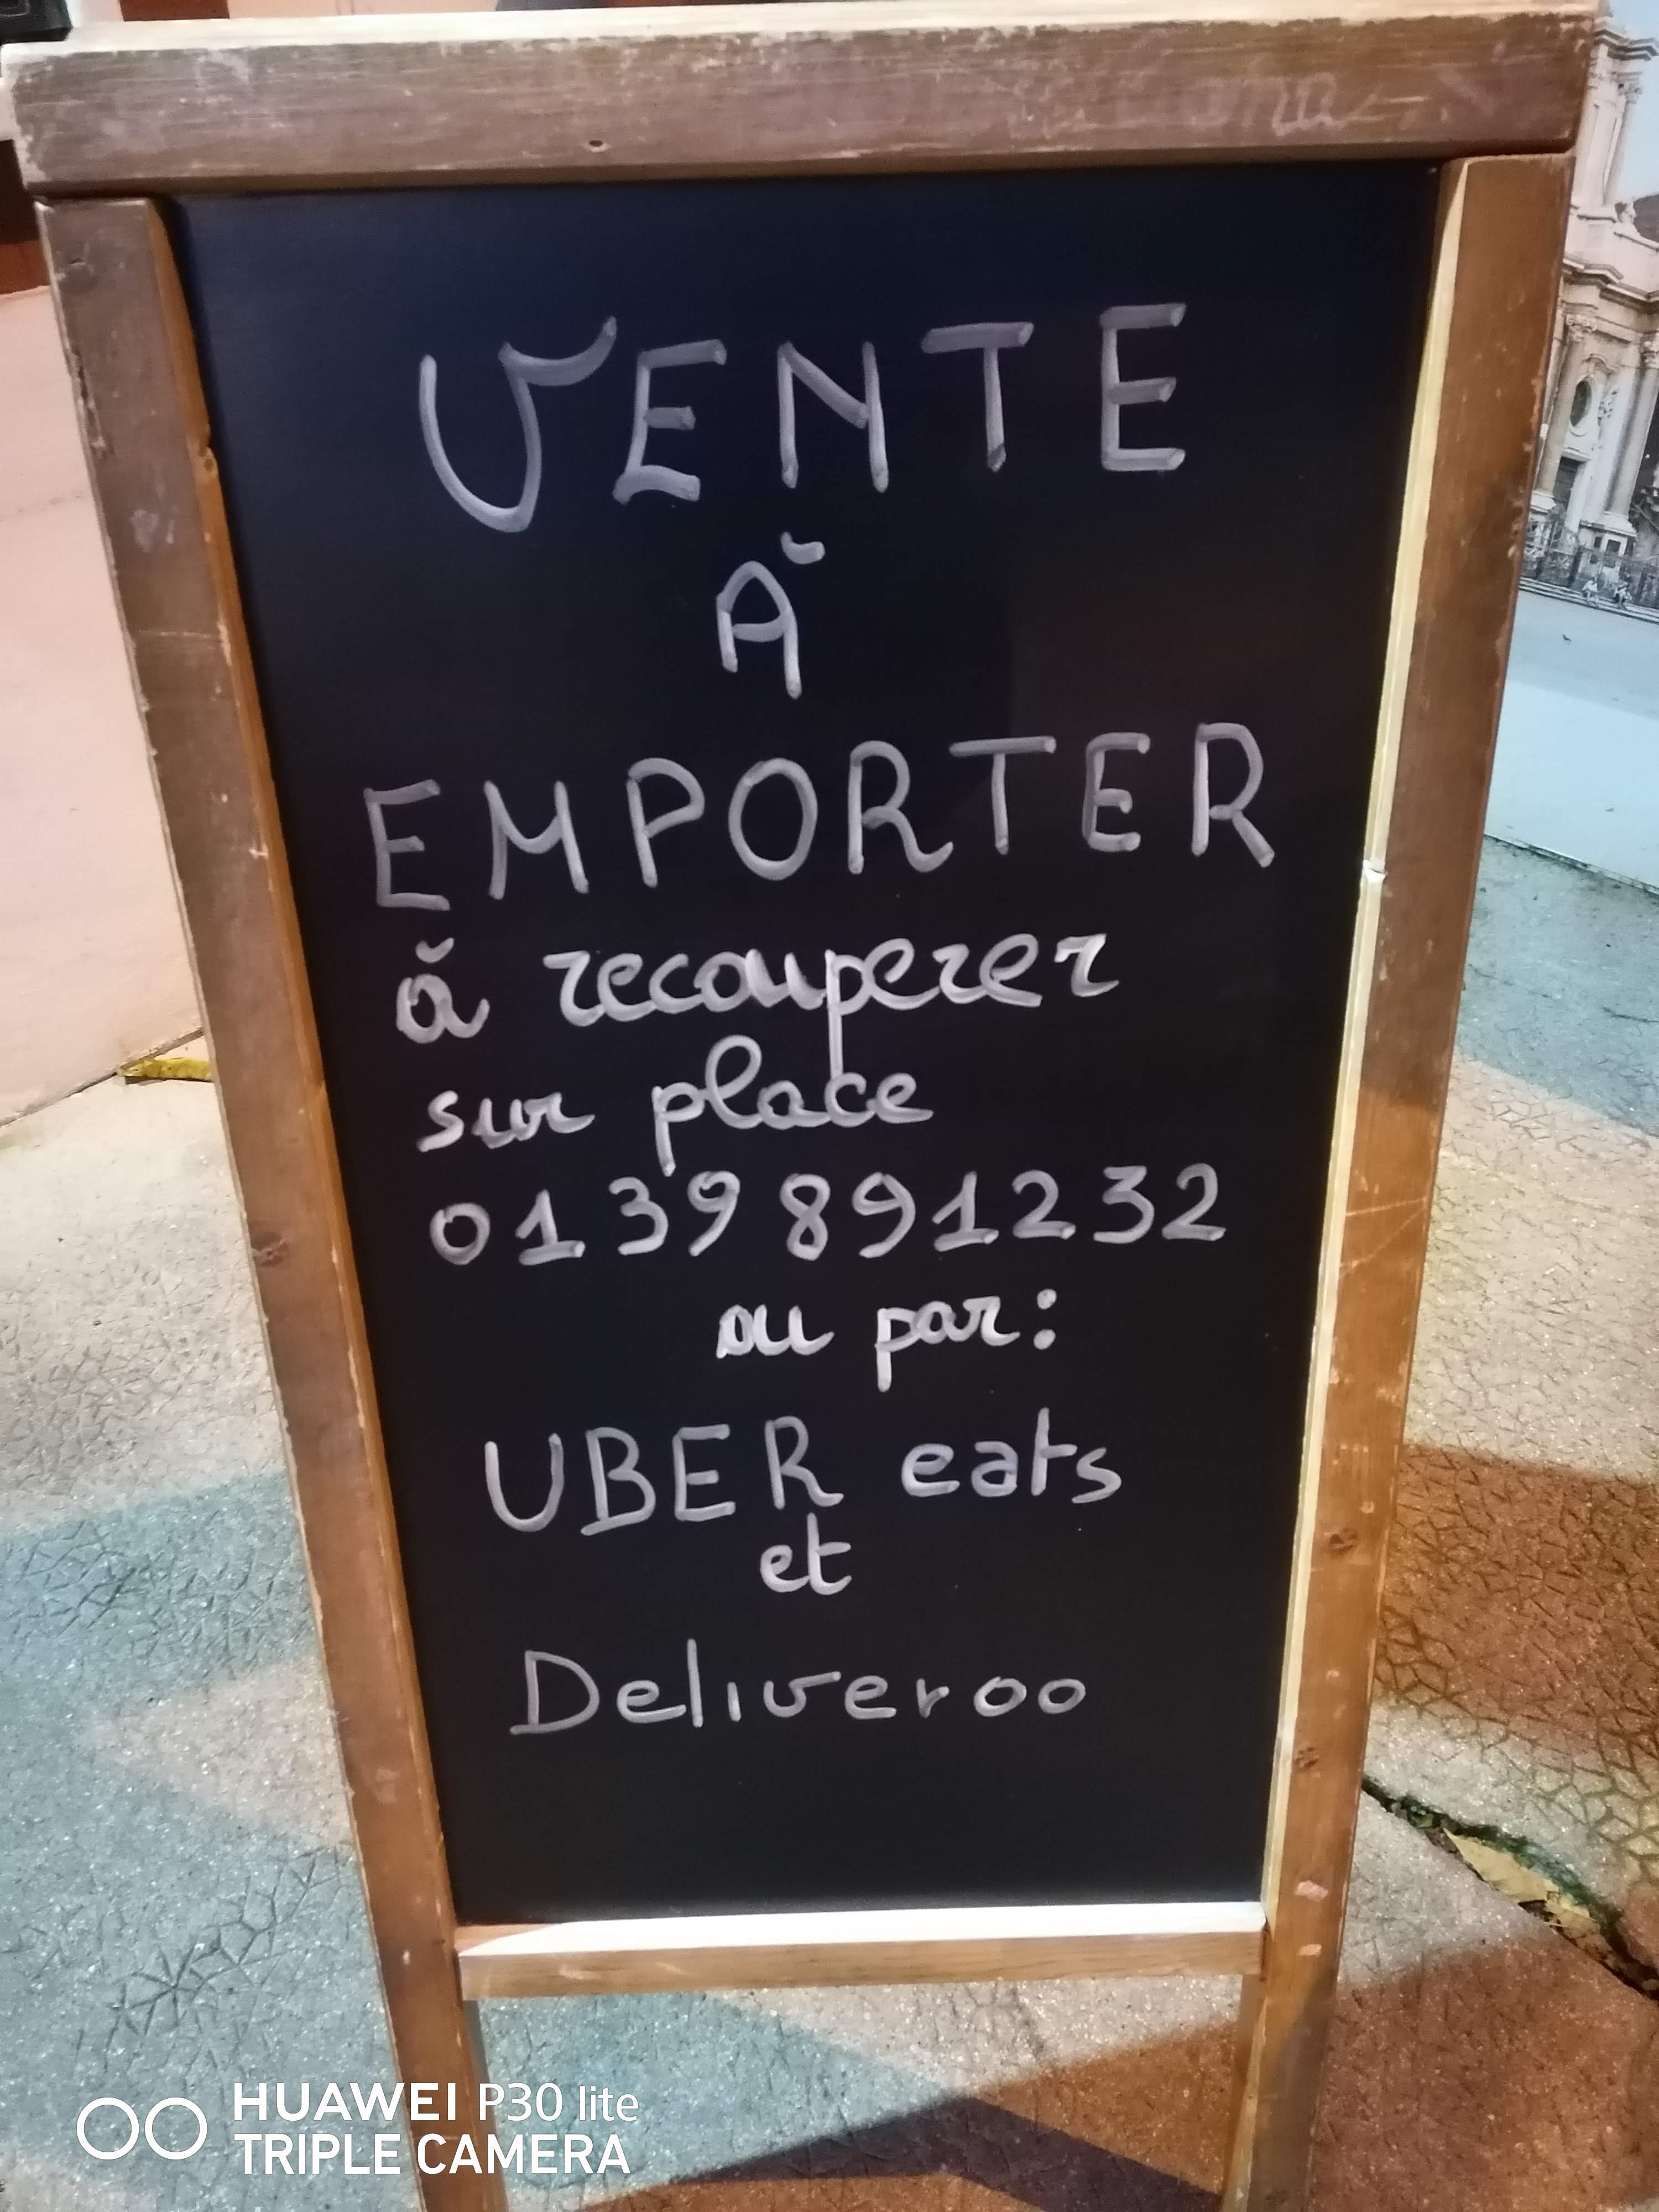 VENTE
À
EMPORTER
à recouperer
sur place
01 39 89 12 32
ou par:
UBER eats
et
Deliveroo
HUAWEI P30 lite
TRIPLE CAMERA